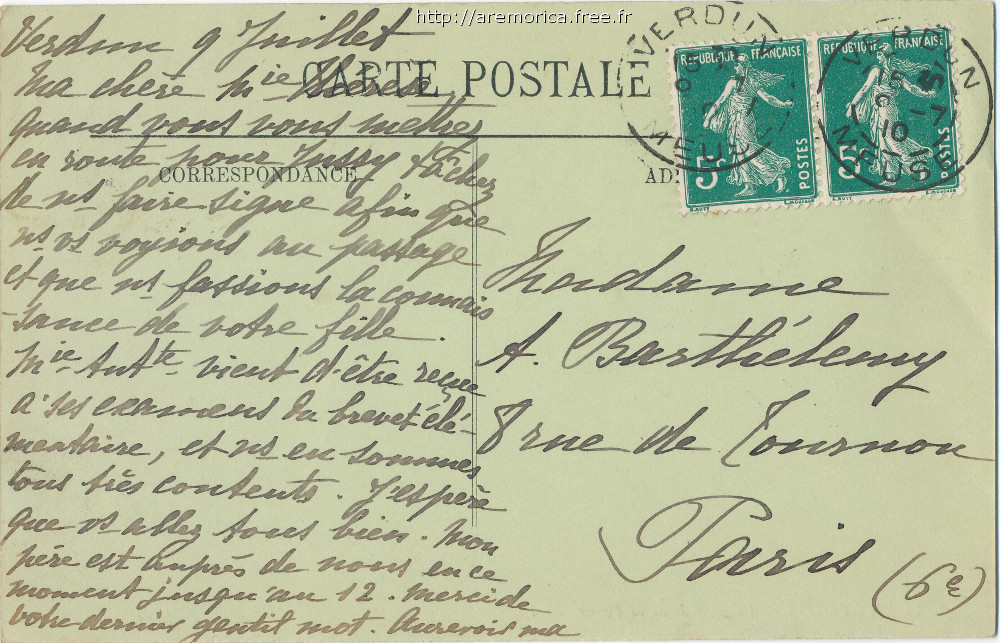 http://aremorica.free.fr
CARTE POSTALE
CORRESPONDANCE
Verdun 9 Juillet
Ma chère Mie Thérèse
quand vous vous mettrez
en route pour Jussy tâchez
de ns faire signe afin que
ns vs voyions au passage
et que ns fassions la connais
-sance de votre fille.
Mie Antte vient d'être reçue
à ses examens du brevet élé-
mentaire, et ns en sommes
tous très contents. J'espère
que vs allez tous bien. Mon
père est auprès de nous en ce
moment jusqu'au 12. Merci de
votre dernier gentil mot. Au revoir ma
VERDUN
MEUSE
REPUBLIQUE FRANÇAISE
5c
POSTES
REPUBLIQUE FRANÇAISE
5c
POSTES
VERDUN
MEUSE
Madame
A. Barthélemy
8 rue de Tournon
Paris
(6e)